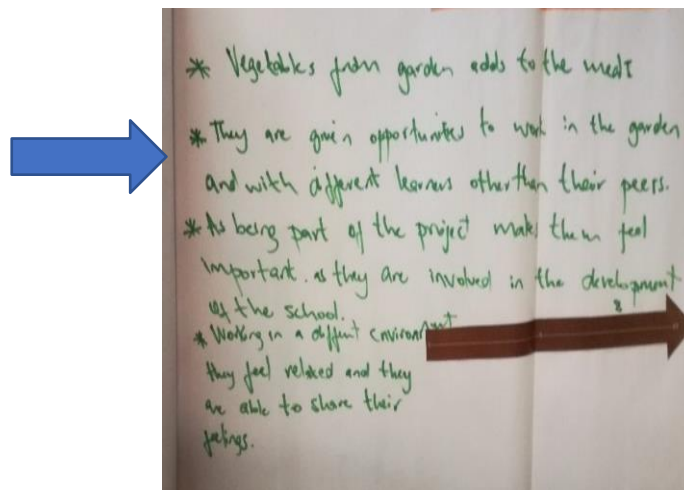 * Vegetables from garden adds to the meals
* They are given opportunities to work in the garden
and with different learners other than their peers.
* As being part of the project makes them feel
important. as they are involved in the development
of the school.
* Working in a diffent environment
they feel relaxed and they
are able to share their
feelings.